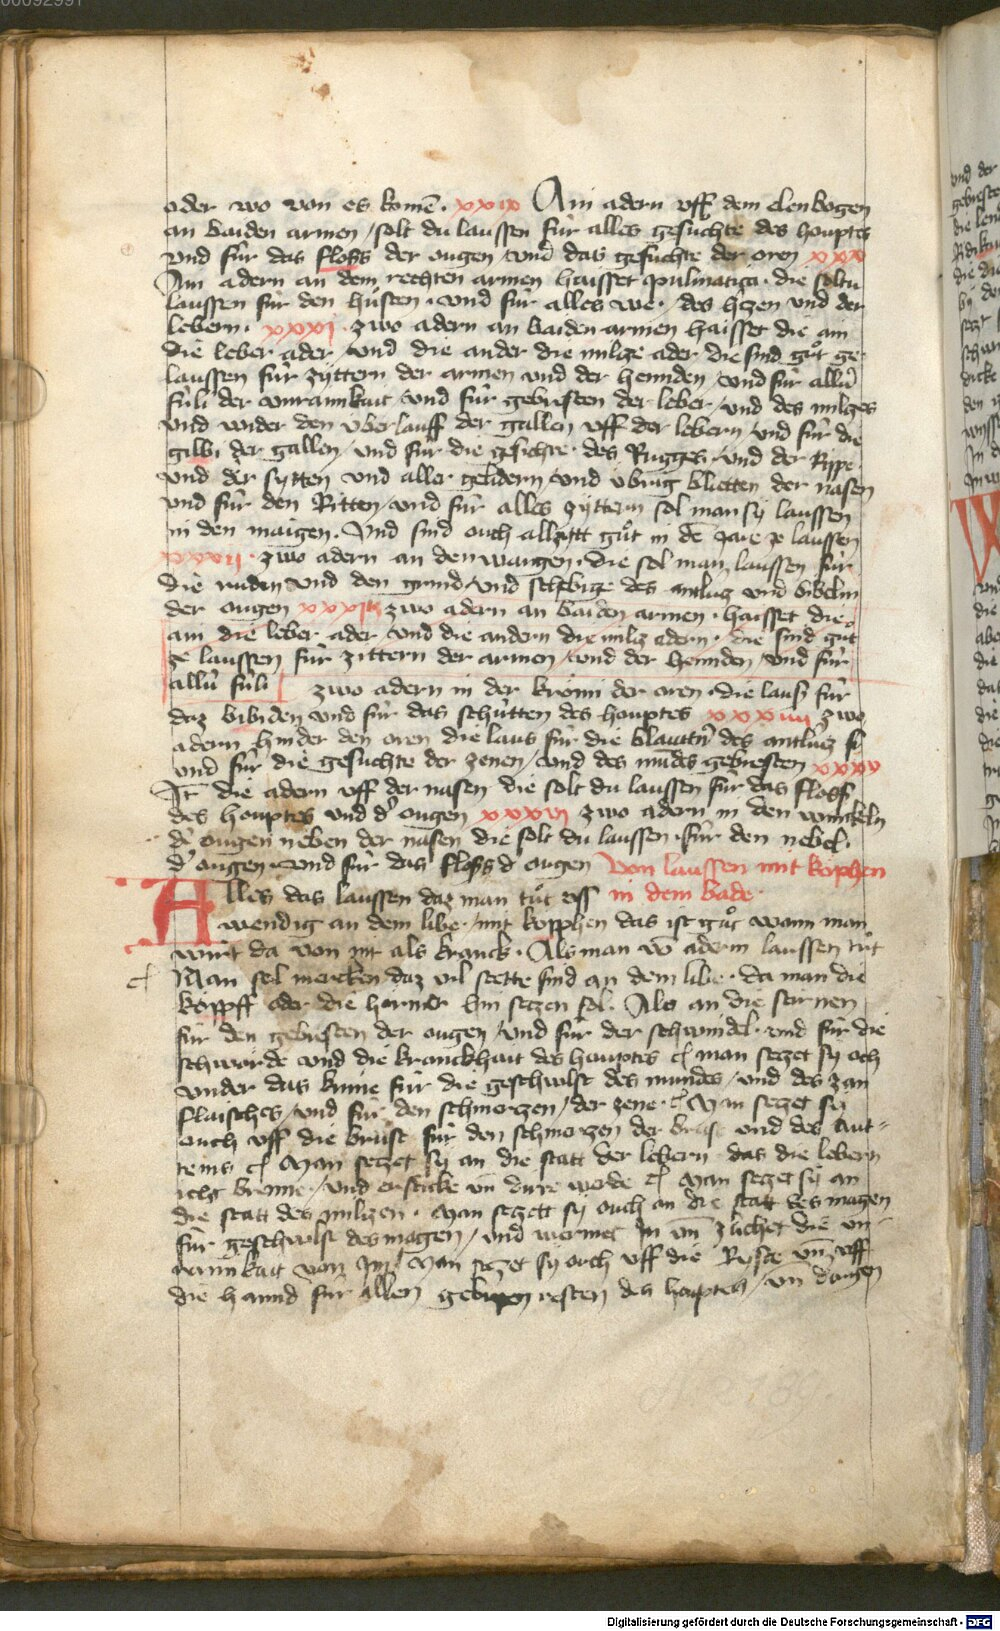 oder wo von es komē · xxix Ain adern vff dem elenbogen
an baiden armen / solt du laussen für alles gesüchte des houptes
vnd für das floss der ougen / vnd das gesuchte der oren xxx
Ain adern an dem rechten armen haisset pulmatica · die soltu
laussen für den hůsten · vnd für alles we · des hczen vnd der
lebern · xxxi · zwo adern an baiden armen haisset die ain
die leber ader / vnd die ander die milcze ader die sind gůt ge
laussen für zyttern der armen vnd der hennden / vnd für allü
füli der vnrainkait vnd für gebresten der leber / vnd des milczes
vnd wider den vberlauff der gallen vff der lebern / vnd für die
gilbi der gallen / vnd für die gesichte · des Rugges · vnd der Rippe
vnd der sytten vnd aller gelidern / vnd v̈brig blietten der nasen
vnd für den Ritten / vnd für alles zyttern sol man sÿ laussen
in den maigen · Vnd sind ouch allzitt gůt in dē Jare ze laussen
xxxii · zwo adern an den wangen · die sol man laussen für
die ruden vnd den grind / vnd schebige des antlicz vnd bibelin
der ougen xxxiii zwo adern an baiden armen · haisset die
ain die leber ader / vnd die andern die milcz adern · die sind gut
ze laussen für zittern der armen / vnd der hennden / vnd für
allü füli zwo adern in der krömi der oren · die lauss für
daz bibiden vnd für das schütten des houptes xxxiiii zwo
adern hinder den oren die laus für die
vnd für die gesuchte der zenen / vnd des mūdes gebresten xxxv
It̄ die adern vff der nasen die solt du laussen für das floss
des houptes vnd d' ougen xxxvi zwo adern in den winckeln
d' ougen neben der nasen die solt du laussen · für den nebel ·
d' ougen · vnd für das floss d' ougen von laussen mit köphen
Alles das laussen daz man tůt vss in dem bade ·
wendig an dem libe · mit kopphen das ist gůt wann man
wirt da von nit als kranck · Als man vō adern laussen tůt
Man sol mercken daz vil stette sind an dem libe · da man die
köppff oder die hörner hin seczen sol · Als an die stirnen
für den gebresten der ougen / vnd für der schwindel · vnd für die
schwärde vnd die kranckhait des houptes ¶ man seczet sy och
vnder das kinne für die geschwlst des mundes / vnd des zan
flaisches / vnd für den schmerczen / der zene · ¶ Man seczet sy
ouch vff die brust für den schmerczen der brust vnd des aut=
tems ¶ Man seczet sy an die statt der lebern · das die lebern
icht brenne / vnd ersticke vn̄ dürre werde ¶ Man seczet sÿ an
die statt des milczen · Man seczett sÿ ouch an die statt des magen
für geschwlst des magen / vnd wermet In vn̄ zücht die vn
rainkait von Im ¶ Man seczet sy och vff die Ryste vn̄ vff
die hannd für allen resten des houptes / vn̄